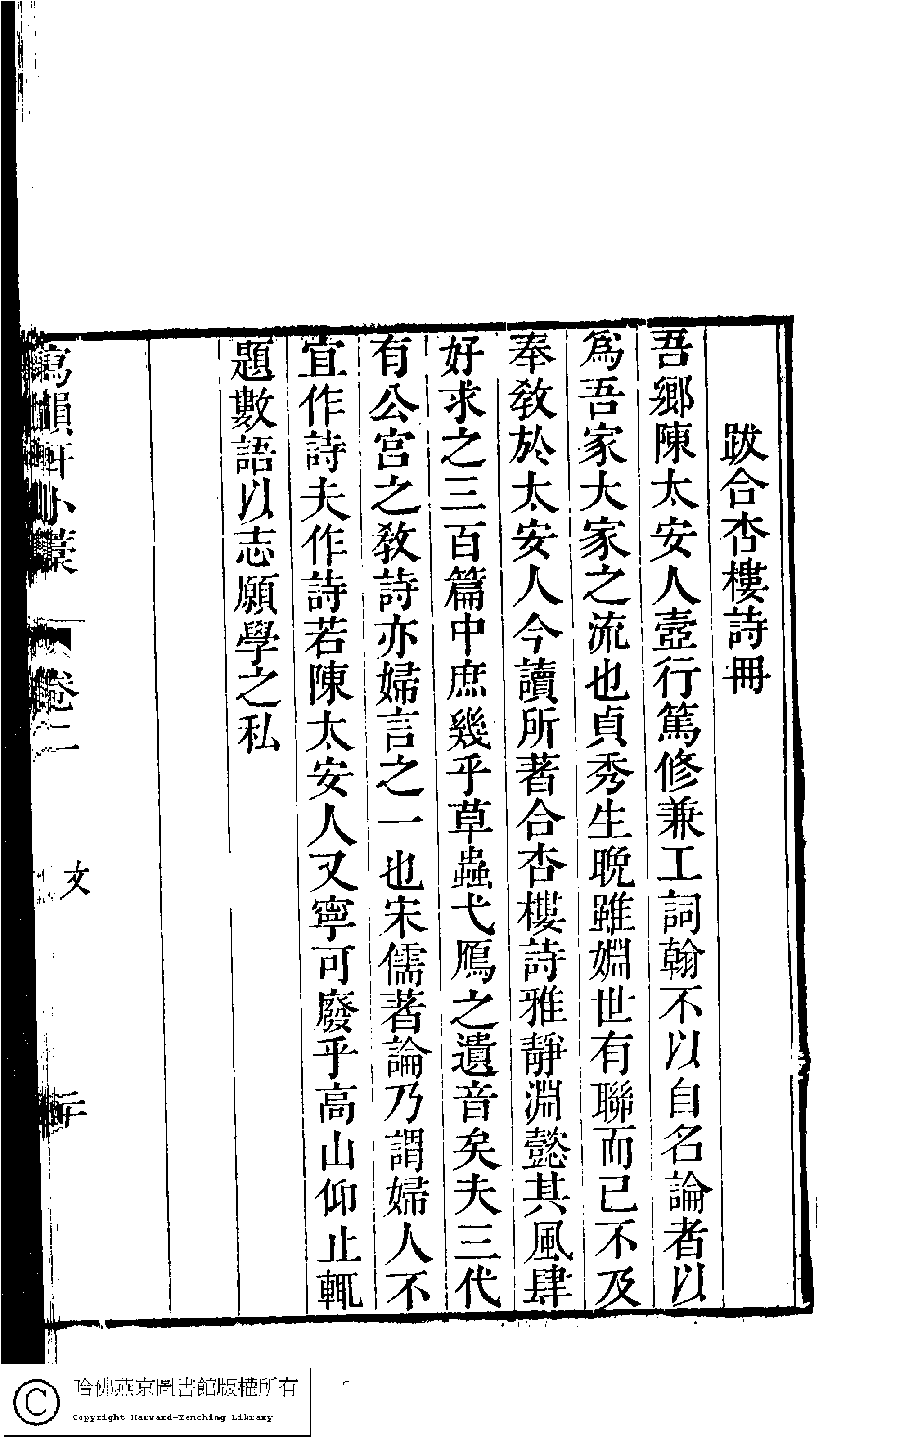 跋合杏樓詩冊
吾鄉陳太安人壼行篤修兼工詞翰不以自名論者以
爲吾家大家之流也貞秀生晚雖婣世有聯而已不及
奉敎於太安人今讀所著合杏樓詩雅靜淵懿其風肆
好求之三百篇中庶幾乎草蟲弋鴈之遺音矣夫三代
有公宮之敎詩亦婦言之一也宋儒著論乃謂婦人不
宜作詩夫作詩若陳太安人又寧可廢乎高山仰止輒
題數語以志願學之私
寫韻軒小藁 卷二 文
哈佛燕京圖書館版權所有
Copyright Harvard-Yenching Library